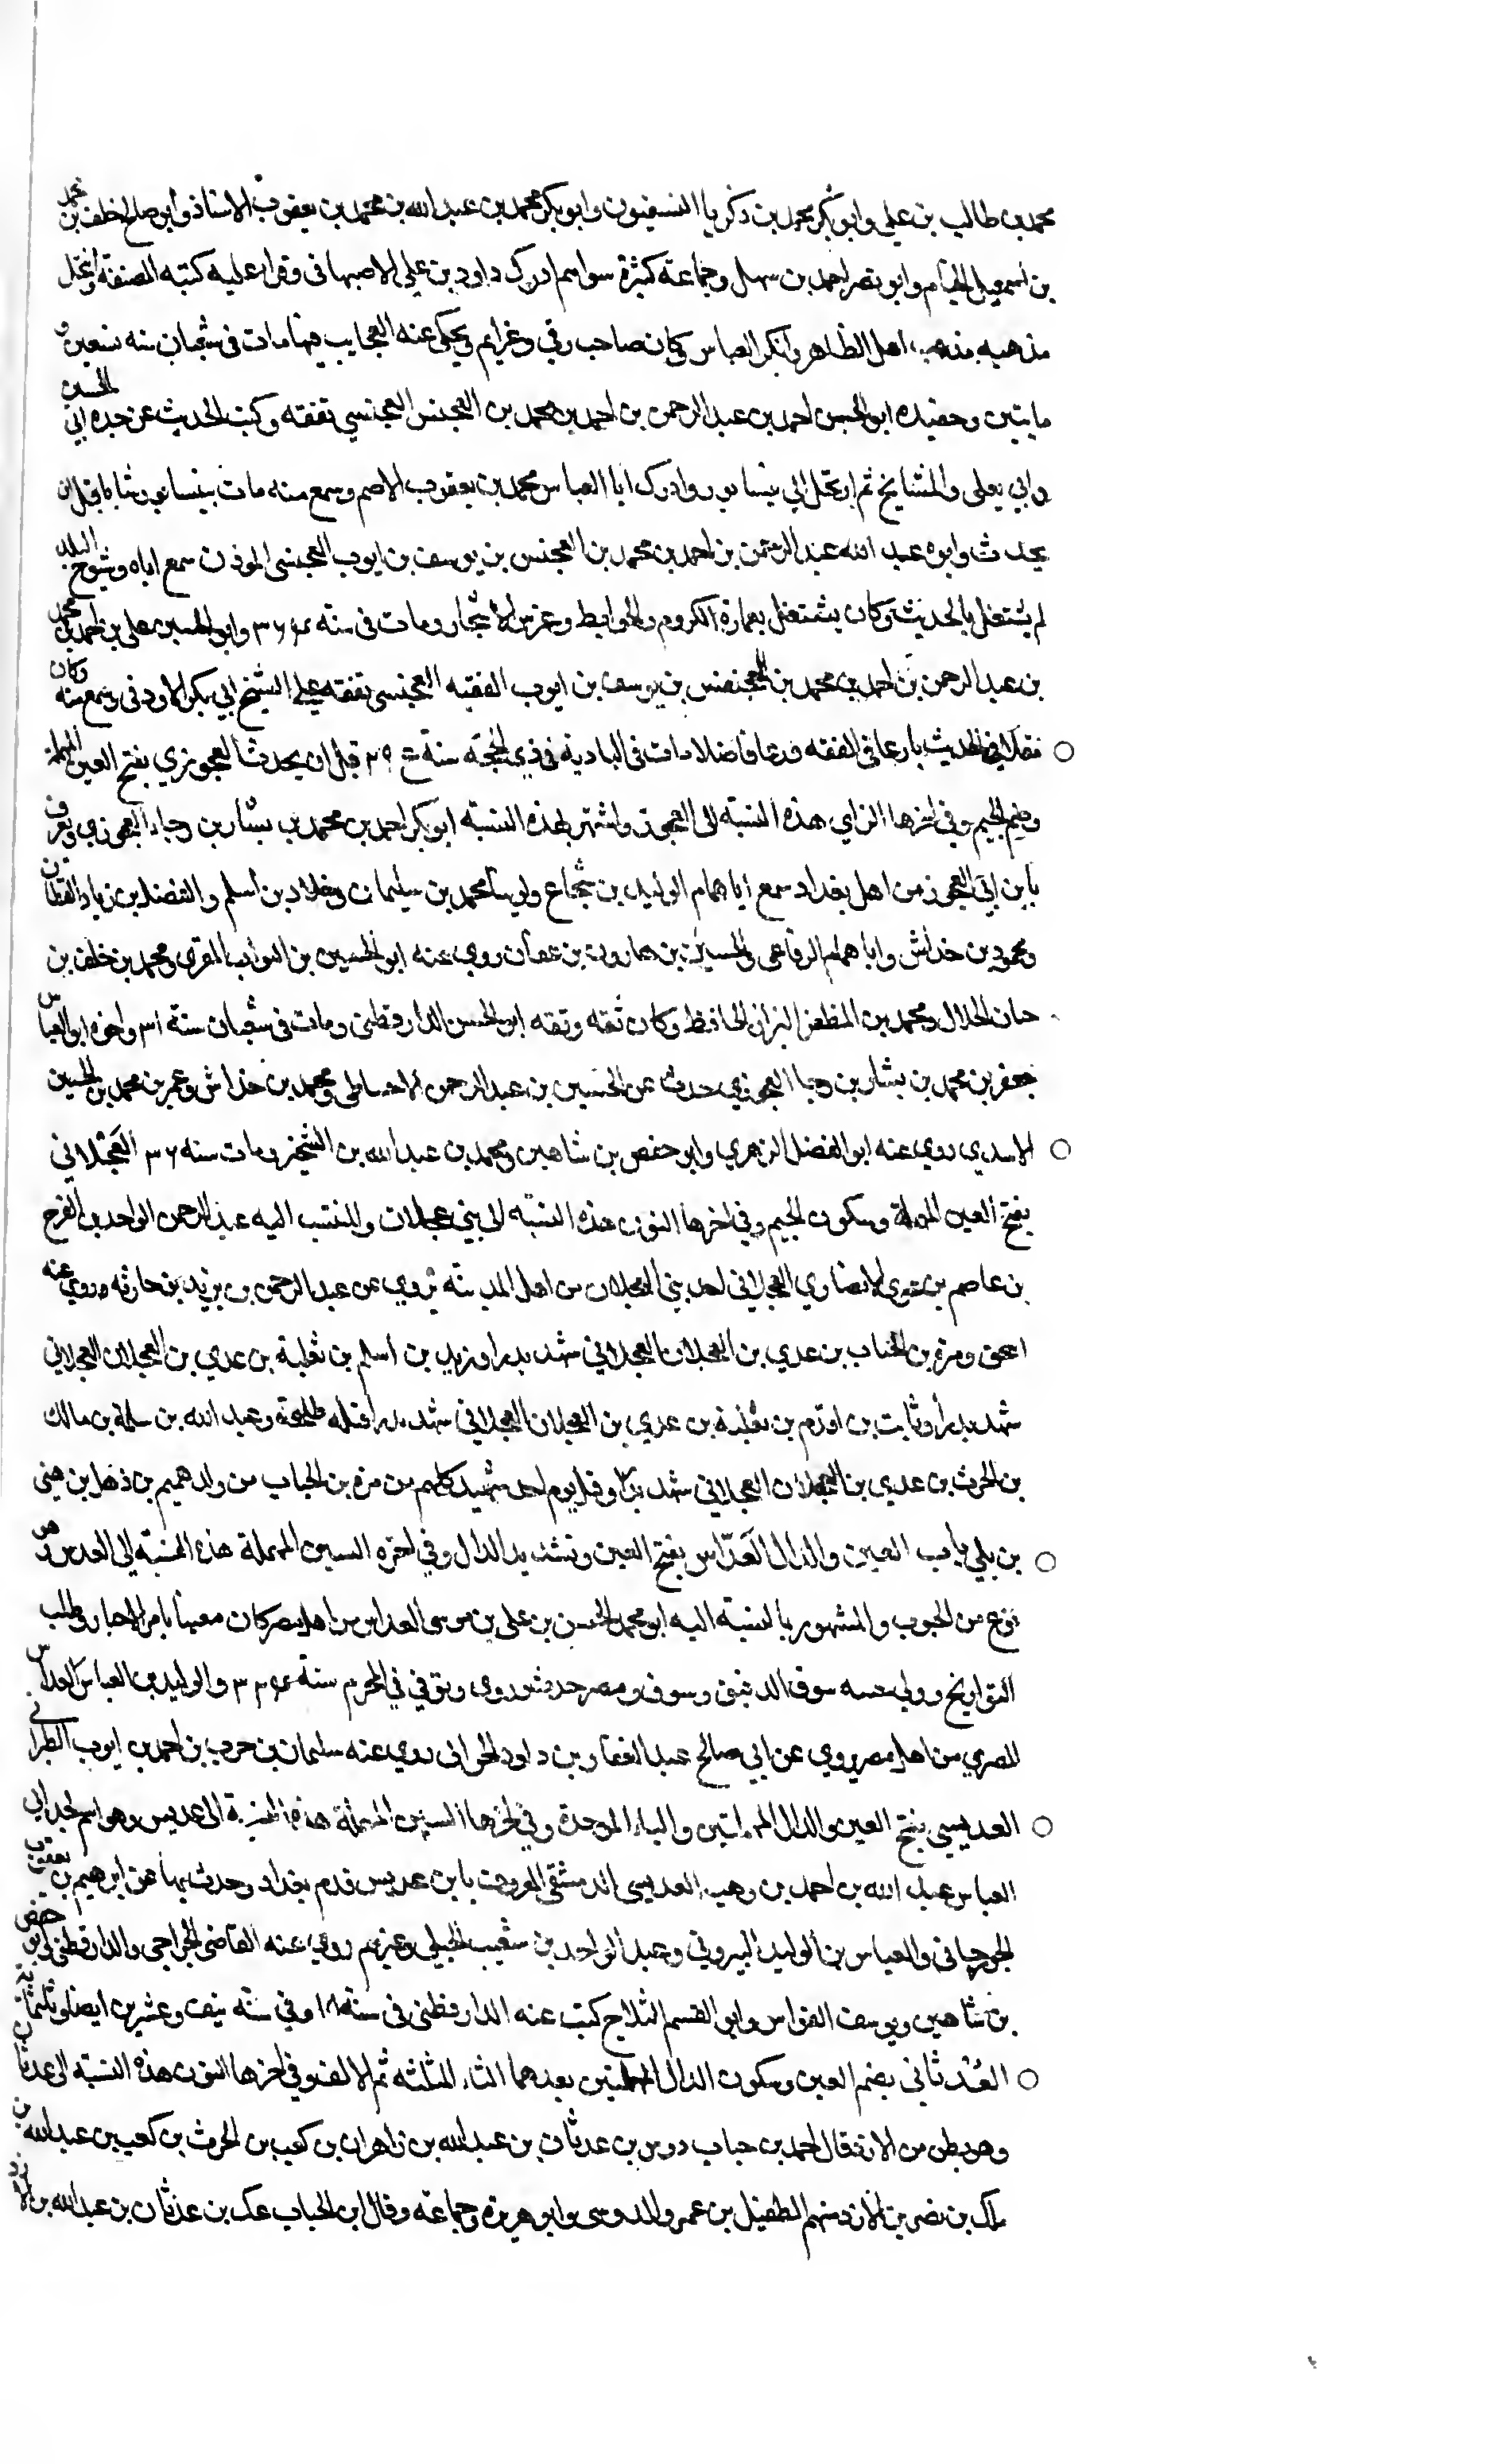 محمد بن طالب بن علي وابو بكر محمد بن زكريا النسفيون وابو بكر محمد بن عبد الله بن محمد بن يعقوب الاستاذ وابو صالح خلف بن محمد
بن اسمعيل الخيام وابو نصر احمد بن سهل وجماعة كثيرة سواهم ادرك داود بن علي الاصبهاني وقرا عليه كتبه المصنفة وانتحل
مذهبه مذهب اهل الظاهر وانكر القياس وكان صاحب رقي وعزايم ويحكى عنه العجايب فيها مات في شعبان سنة تسعين و
مايتين وحفيده ابو الحسن احمد بن عبد الرحمن بن احمد بن محمد بن العجنس العجنسي تفقه وكتب الحديث عن جده ابي الحسين
وابي يعلى والمشايخ ثم ارتحل الي نيسابور وادرك ابا العباس محمد بن يعقوب الاصم وسمع منه مات بنيسابور شابا قبل ان
يحدث وابوه عبد الله عبد الرحمن بن احمد بن محمد بن العجنس بن يوسف بن ايوب العجنسي الموذن سمع اباه وشيوخ البلد
لم يشتغل بالحديث وكان يشتغل بعمارة الكروم والحوايط وغرس الاشجار ومات في سنة ٣٦٤ وابو الحسين علي بن احمد بن محمد
بن عبد الرحمن بن احمد بن محمد بن العجنس بن يوسف بن ايوب الفقيه العجنسي تفقه علي الشيخ ابي بكر الاودني وسمع منه وكان
الحديث بارعا في الفقه ورعا فاضلا مات في البادية في ذي الحجة سنة قبل ان يحدث العجوزي بفتح العين المهملة
وضم الجيم وفي اخرها الزاي هذه النسبة الى العجوز واشتهر بهذه النسبة ابو بكر احمد بن محمد بن بشار بن رجاء العجوزي ويعرف
بابن ابي العجوز من اهل بغداد سمع ابا همام الوليد بن شجاع ولوينا محمد بن سليمان وخلاد بن اسلم والفضل بن زياد القطان
ومحمود بن خداش وابا هشام الرفاعي والحسين بن هارون بن عقان روي عنه ابو الحسين بن البواب المقري ومحمد بن خلف بن
حيان الخلال ومحمد بن المظفر البزاز الحافظ وكان ثقة وثقه ابو الحسن الدارقطني ومات في شعبان سنة ٣١ واخوه ابو العباس
جعفر بن محمد بن بشار بن رجا العجوزي حدث عن الحسين بن عبد الرحمن الاحتياطي ومحمد بن خداش وعمر بن محمد بن الحسين
الاسدي روي عنه ابو الفضل الزهري وابو حفص بن شاهين ومحمد بن عبد الله بن الشخير ومات سنة ٣٦ العَجْلاني
بفتح العين المهملة وسكون الجيم وفي اخرها النون هذه النسبة الى بني عجلان والمنتسب اليه عبد الرحمن الواحد بن الفرج
بن عاصم بن عدي الانصاري العجلاني احد بني العجلان من اهل المدينة يروي عن عبد الرحمن بن يزيد بن حارثة وروي عنه
اسحق ومرة بن الحباب بن عدي بن العجلان العجلاني شهد بدرا وزيد بن اسلم بن ثعلبة بن عدي بن العجلان العجلاني
شهد بدرا وثابت بن اقرم بن ثعلبة بن عدي بن العجلان العجلاني شهد بدرا قتله طليحة وعبد الله بن سلمة بن مالك
بن الحرث بن عدي بن العجلان العجلاني شهد بدرا وقتل يوم احد شهيدا كلهم من مرة بن الحباب من ولد هميم بن ذهل بن هني
بن بلي باب العين والدال العَدّاس بفتح العين وتشديد الدال وفي اخره السين المهملة هذه النسبة الي العدس وهو
نوع من الحبوب والمشهور بالنسبة اليه ابو محمد الحسن بن علي بن موسى العداس من اهل مصر كان معينا بامر الاخبار وطلب
التواريخ وولي حسبة سوق الدقيق وسوف ومصر حديث وروي وتوفي في المحرم سنة ٣٣٤ والوليد بن العباس العداس
المصري من اهل مصر يروي عن ابي صالح عبد الغفار بن داود الحراني روي عنه سليمان بن حرب بن احمد بن ايوب الطبراني
العدبسي بفتح العين والدال المهملتين والباء الموحدة وفي اخرها السين المهملة هذه النسبة الى عدبس وهو اسم لجد ابي
العباس عبد الله بن احمد بن وهيب العدبسي الدمشقي المعروف بابن عدبس قدم بغداد وحدث بها عن ابرهيم بن يعقوب
الجورجاني والعباس بن الوليد البيروتي وعبد الواحد بن شعيب الجبلي وغيرهم روي عنه القاضي الجراحي والدارقطني وابو حفص
بن شاهين ويوسف القواس وابو القسم الثلاج كتب عنه الدارقطني في سنة ١٨ وفي سنة نيف وعشرين ايضا وثلثماية
العُدْثاني بضم العين وسكون الدال المهملتين بعدهما الثاء المثلثة ثم الالف وفي اخرها النون هذه النسبة الى عدثان
وهو بطن من الازد قال احمد بن حباب دوس بن عدثان بن عبد الله بن زاهران بن كعب بن الحرث بن كعب بن عبد الله بن
مالك بن نضر بن الازد منهم الطفيل بن عمرو الدوسي وابو هريرة وجماعة وقال ابن الحباب عك بن عدثان بن عبد الله بن الازد